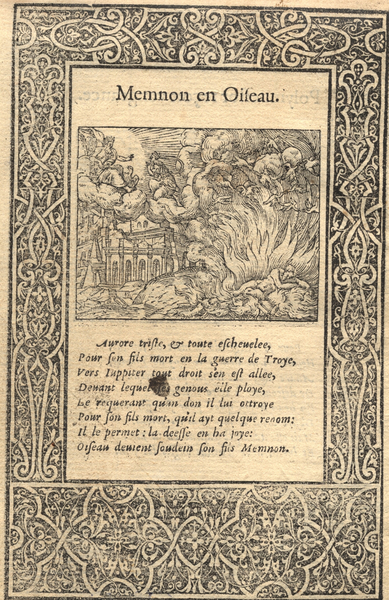 Memnon en Oiſeau.
Aurore triſte, & toute eſcheuelee,
Pour ſon fils mort en la guerre de Troye,
Vers Iuppiter tout droit s'en eſt allee,
Deuant lequel ſes genous elle ploye,
Le requerant qu'un don il lui ottroye
Pour ſon fils mort, qu'il ayt quelque renom:
Il le permet: la deeſſe en ha joye:
Oiſeau deuient ſoudein ſon fils Memnon.